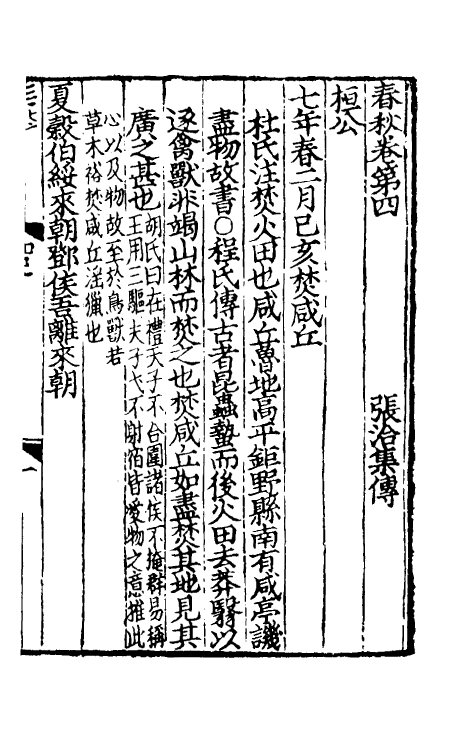 春秋卷第四　張洽集傳
桓公
七年春二月己亥焚咸丘
杜氏注焚火田也咸丘魯地高平鉅野縣南有咸亭譏
盡物故書○程氏傳古者昆蟲蟄而後火田去莽翳以
逐禽獸非竭山林而焚之也焚咸丘如盡焚其地見其
廣之甚也胡氏曰在禮天子不合圍諸侯不掩群易稱
王用三驅夫子弋不射宿皆愛物之意推此
心以及物故至於鳥獸若
草木裕焚咸丘淫獵也
夏穀伯綏來朝鄧侯吾離來朝